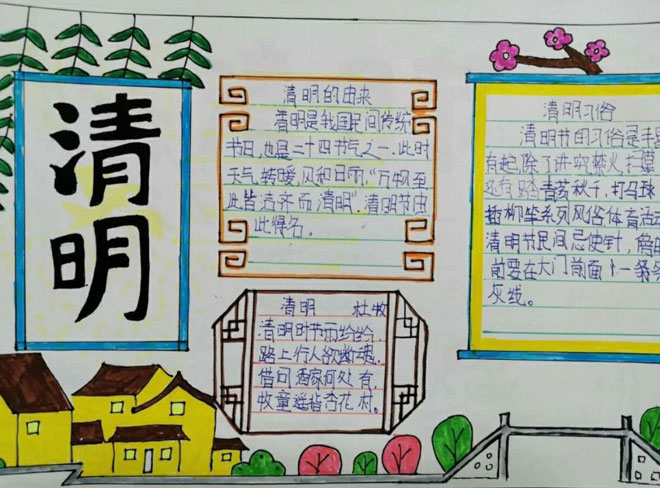 清
明
清明的由来
清明是我国民间传统
节日,也是二十四节气之一.此时
天气转暖,风和日丽,"万物至
此皆洁齐而清明".清明节由
此得名。
清明 杜牧
清明时节雨纷纷,
路上行人欲断魂,
借问酒家何处有,
牧童遥指杏花村。
清明习俗
清明节的习俗是丰
有起,除了讲究禁火,扫墓
还有踏青荡秋千,打马球
插柳等系列风俗体育活动
清明节民间忌使针,
前要在大门前面一条
灰线。